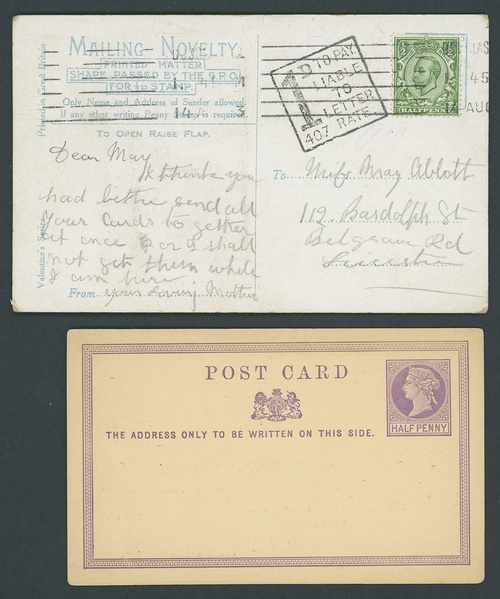 MAILING NOVELTY.
PRINTED MATTER
SHAPE PASSED BY THE G.P.O.
FOR ½D STAMP.
Only Name and Address of Sender allowed.
If any other writing Penny Stamp is required.
TO OPEN RAISE FLAP.
Printed in Great Britain
Valentine's Series
Dear May
I think you
had better send all
your cards to gether
at once or I shall
not get them while
I am here
From your loving Mother
1D TO PAY
LIABLE
TO
LETTER
RATE
407
HALFPENNY
45
14 AUG
To Miss May Abbott
112 Bardolph St
Belgrave Rd
Leicester
POST CARD
THE ADDRESS ONLY TO BE WRITTEN ON THIS SIDE.
HALF PENNY